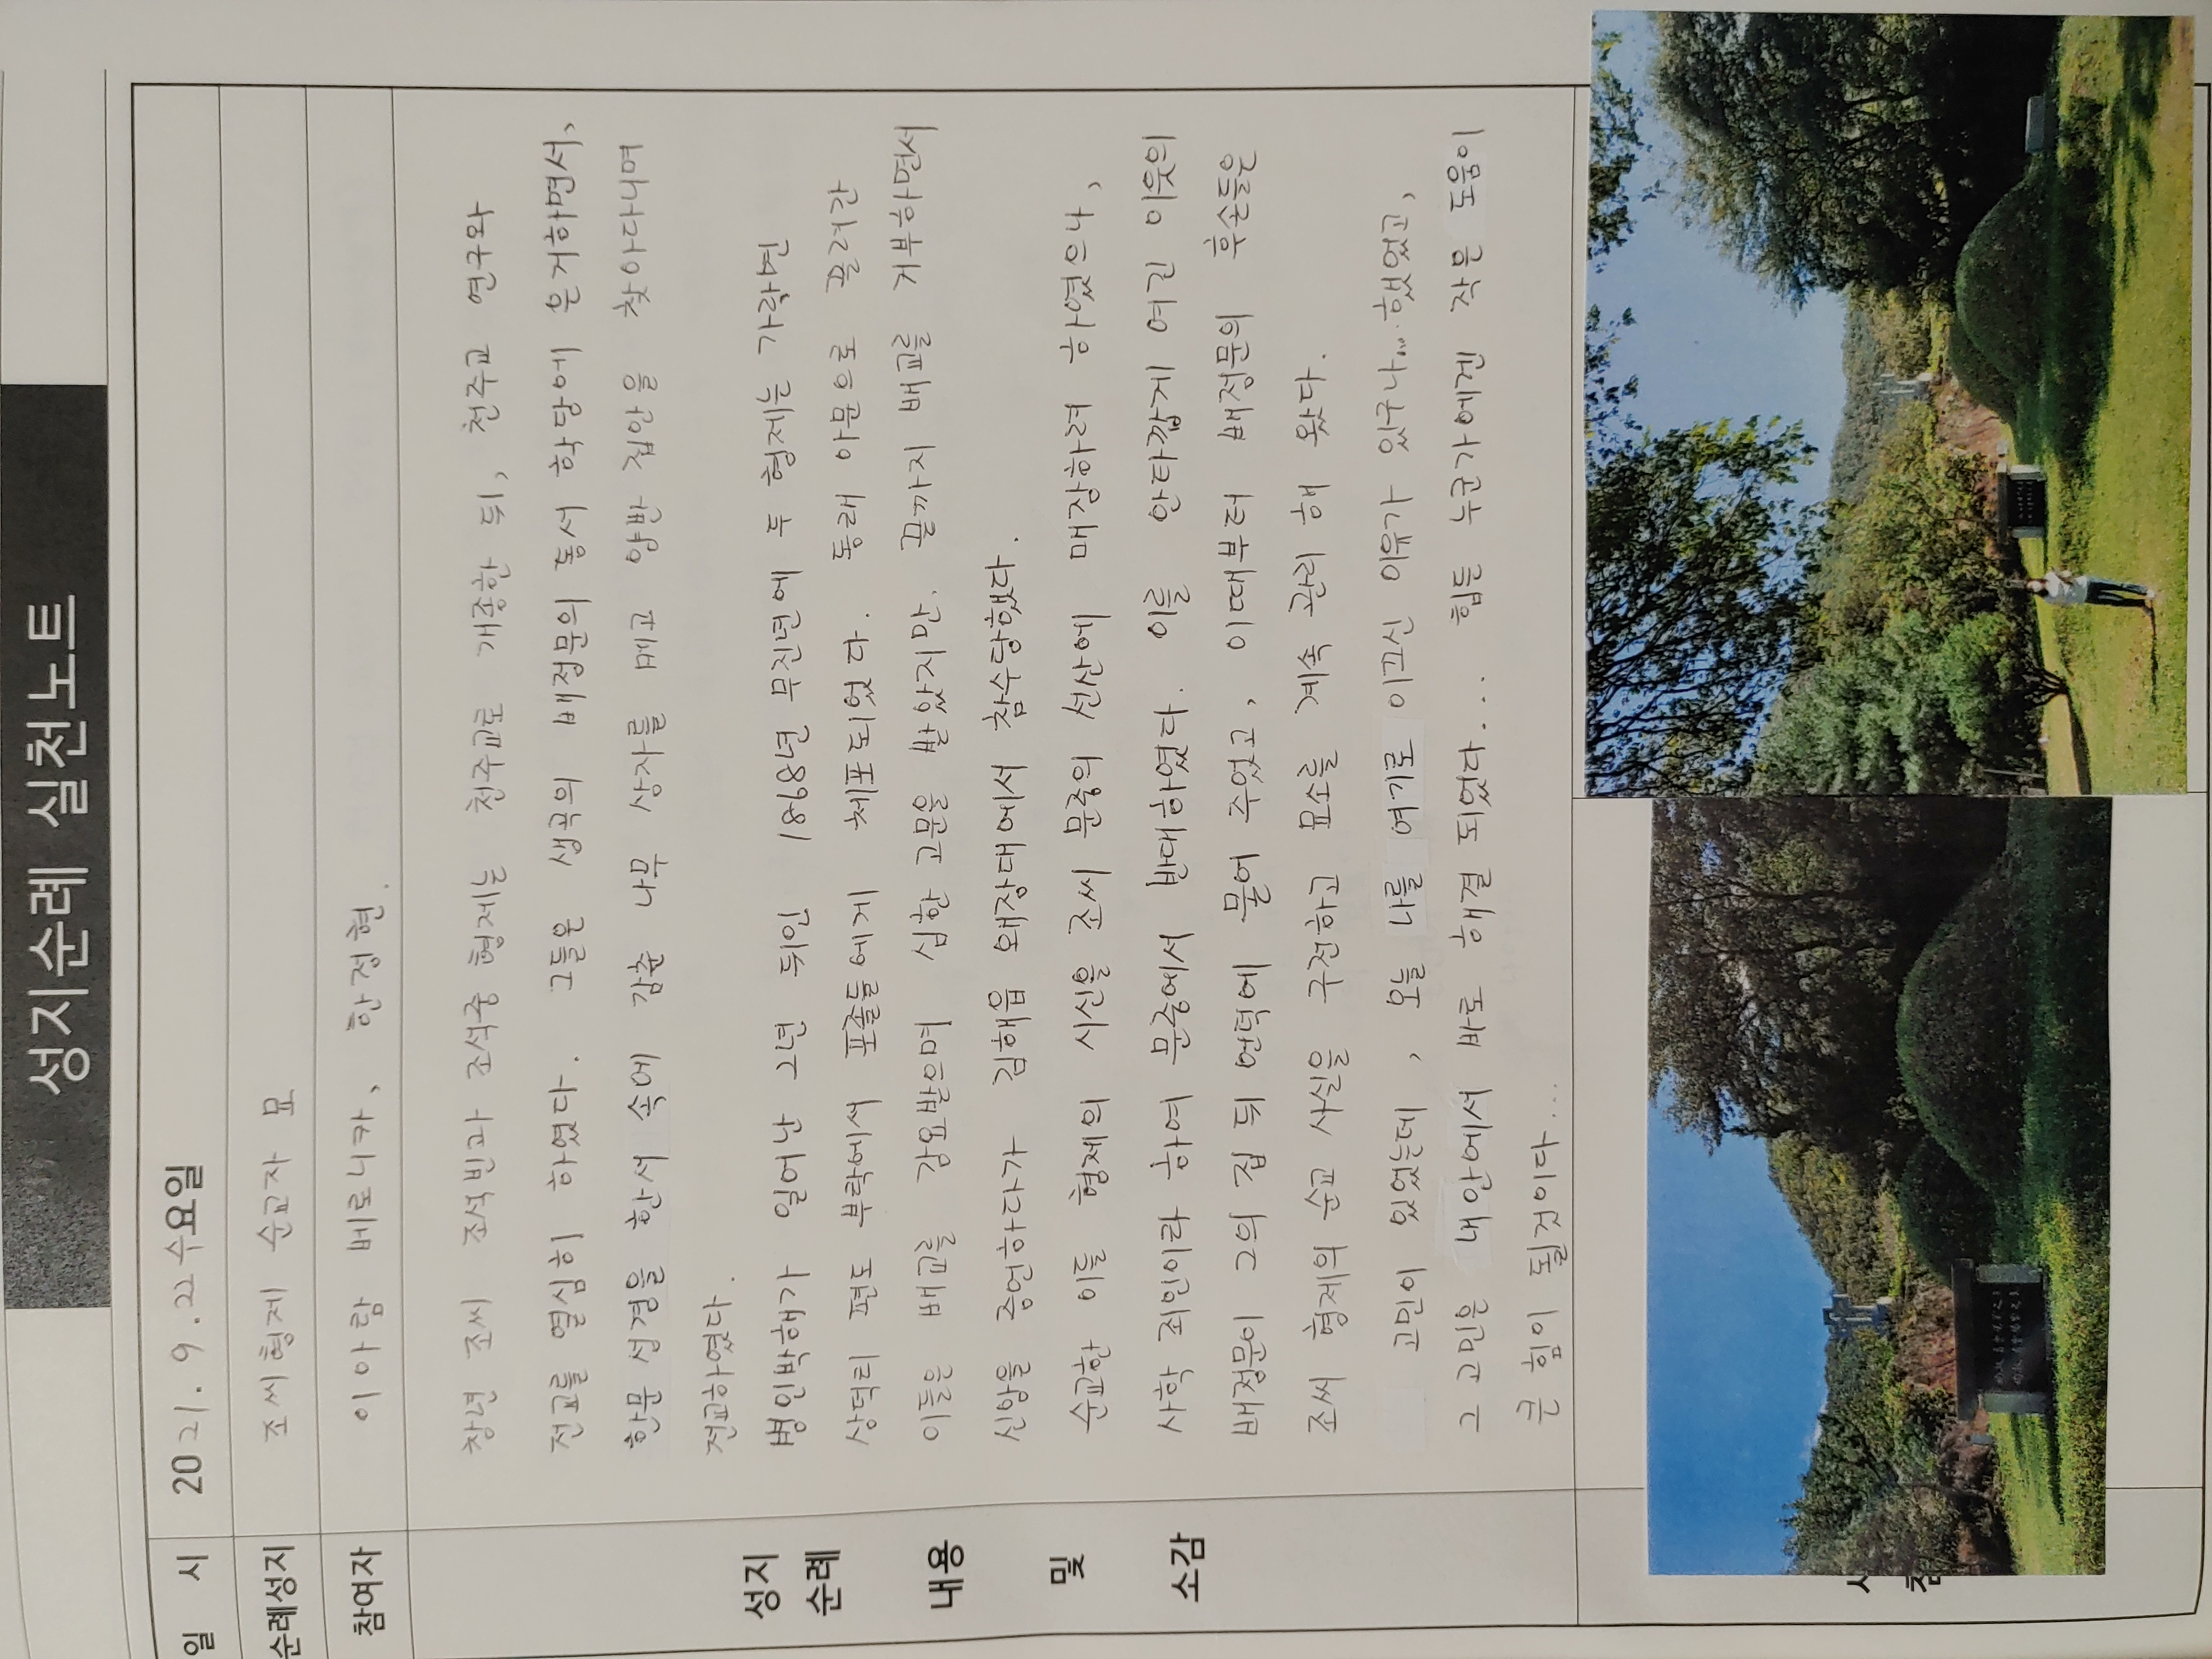 성지순례 실천노트
일 시 2021. 9. 22 수요일
순례성지 조씨형제 순교자 묘
참여자 이아람 베로니카, 한정현.
성지 순례 내용 및 소감
창년 조씨 조석빈과 조석중 형제는 천주교로 개종한 뒤, 천주교 연구와
전교를 열심히 하였다. 그들은 생곡의 배정문의 동서 학당에 은거하면서,
한문 성경을 한서 속에 감춘 나무 상자를 메고 양반 집안을 찾아다니며
전교하였다.
병인박해가 일어난 2년 뒤인 1868년 무진년에 두 형제는 가락면
상덕리 편도 부락에서 포졸들에게 체포되었다. 동래 아문으로 끌려간
이들은 배교를 강요받으며 심한 고문을 받았지만, 끝까지 배교를 거부하면서
신앙을 증언하다가 김해읍 왜장대에서 참수당했다.
순교한 이들 형제의 시신을 조씨 문중의 선산에 매장하려 하였으나,
사학 죄인이라 하여 문중에서 반대하였다. 이를 안타깝게 여긴 이웃의
배정문이 그의 집 뒤 언덕에 묻어 주었고, 이때부터 배정문의 후손들은
조씨 형제의 순교 사실을 구전하고 묘소를 계속 관리 해 왔다.
고민이 있었는데, 오늘 나를 여기로 이끄신 이유가 있구나... 했었고,
그 고민은 내 안에서 바로 해결 되었다... 힘든 누군가에겐 작은 도움이
큰 힘이 될것이다...